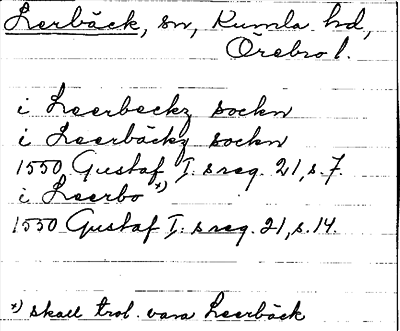 Lerbäck, sn, Kumla hd,
Örebro l.
i Leerbeckz sockn
i Leerbäckz sockn
1550 Gustaf I. s reg. 21, s. 7.
i Leerbo *)
1550 Gustaf I. s reg. 21, s. 14.
*) skall trol. vara Leerbäck